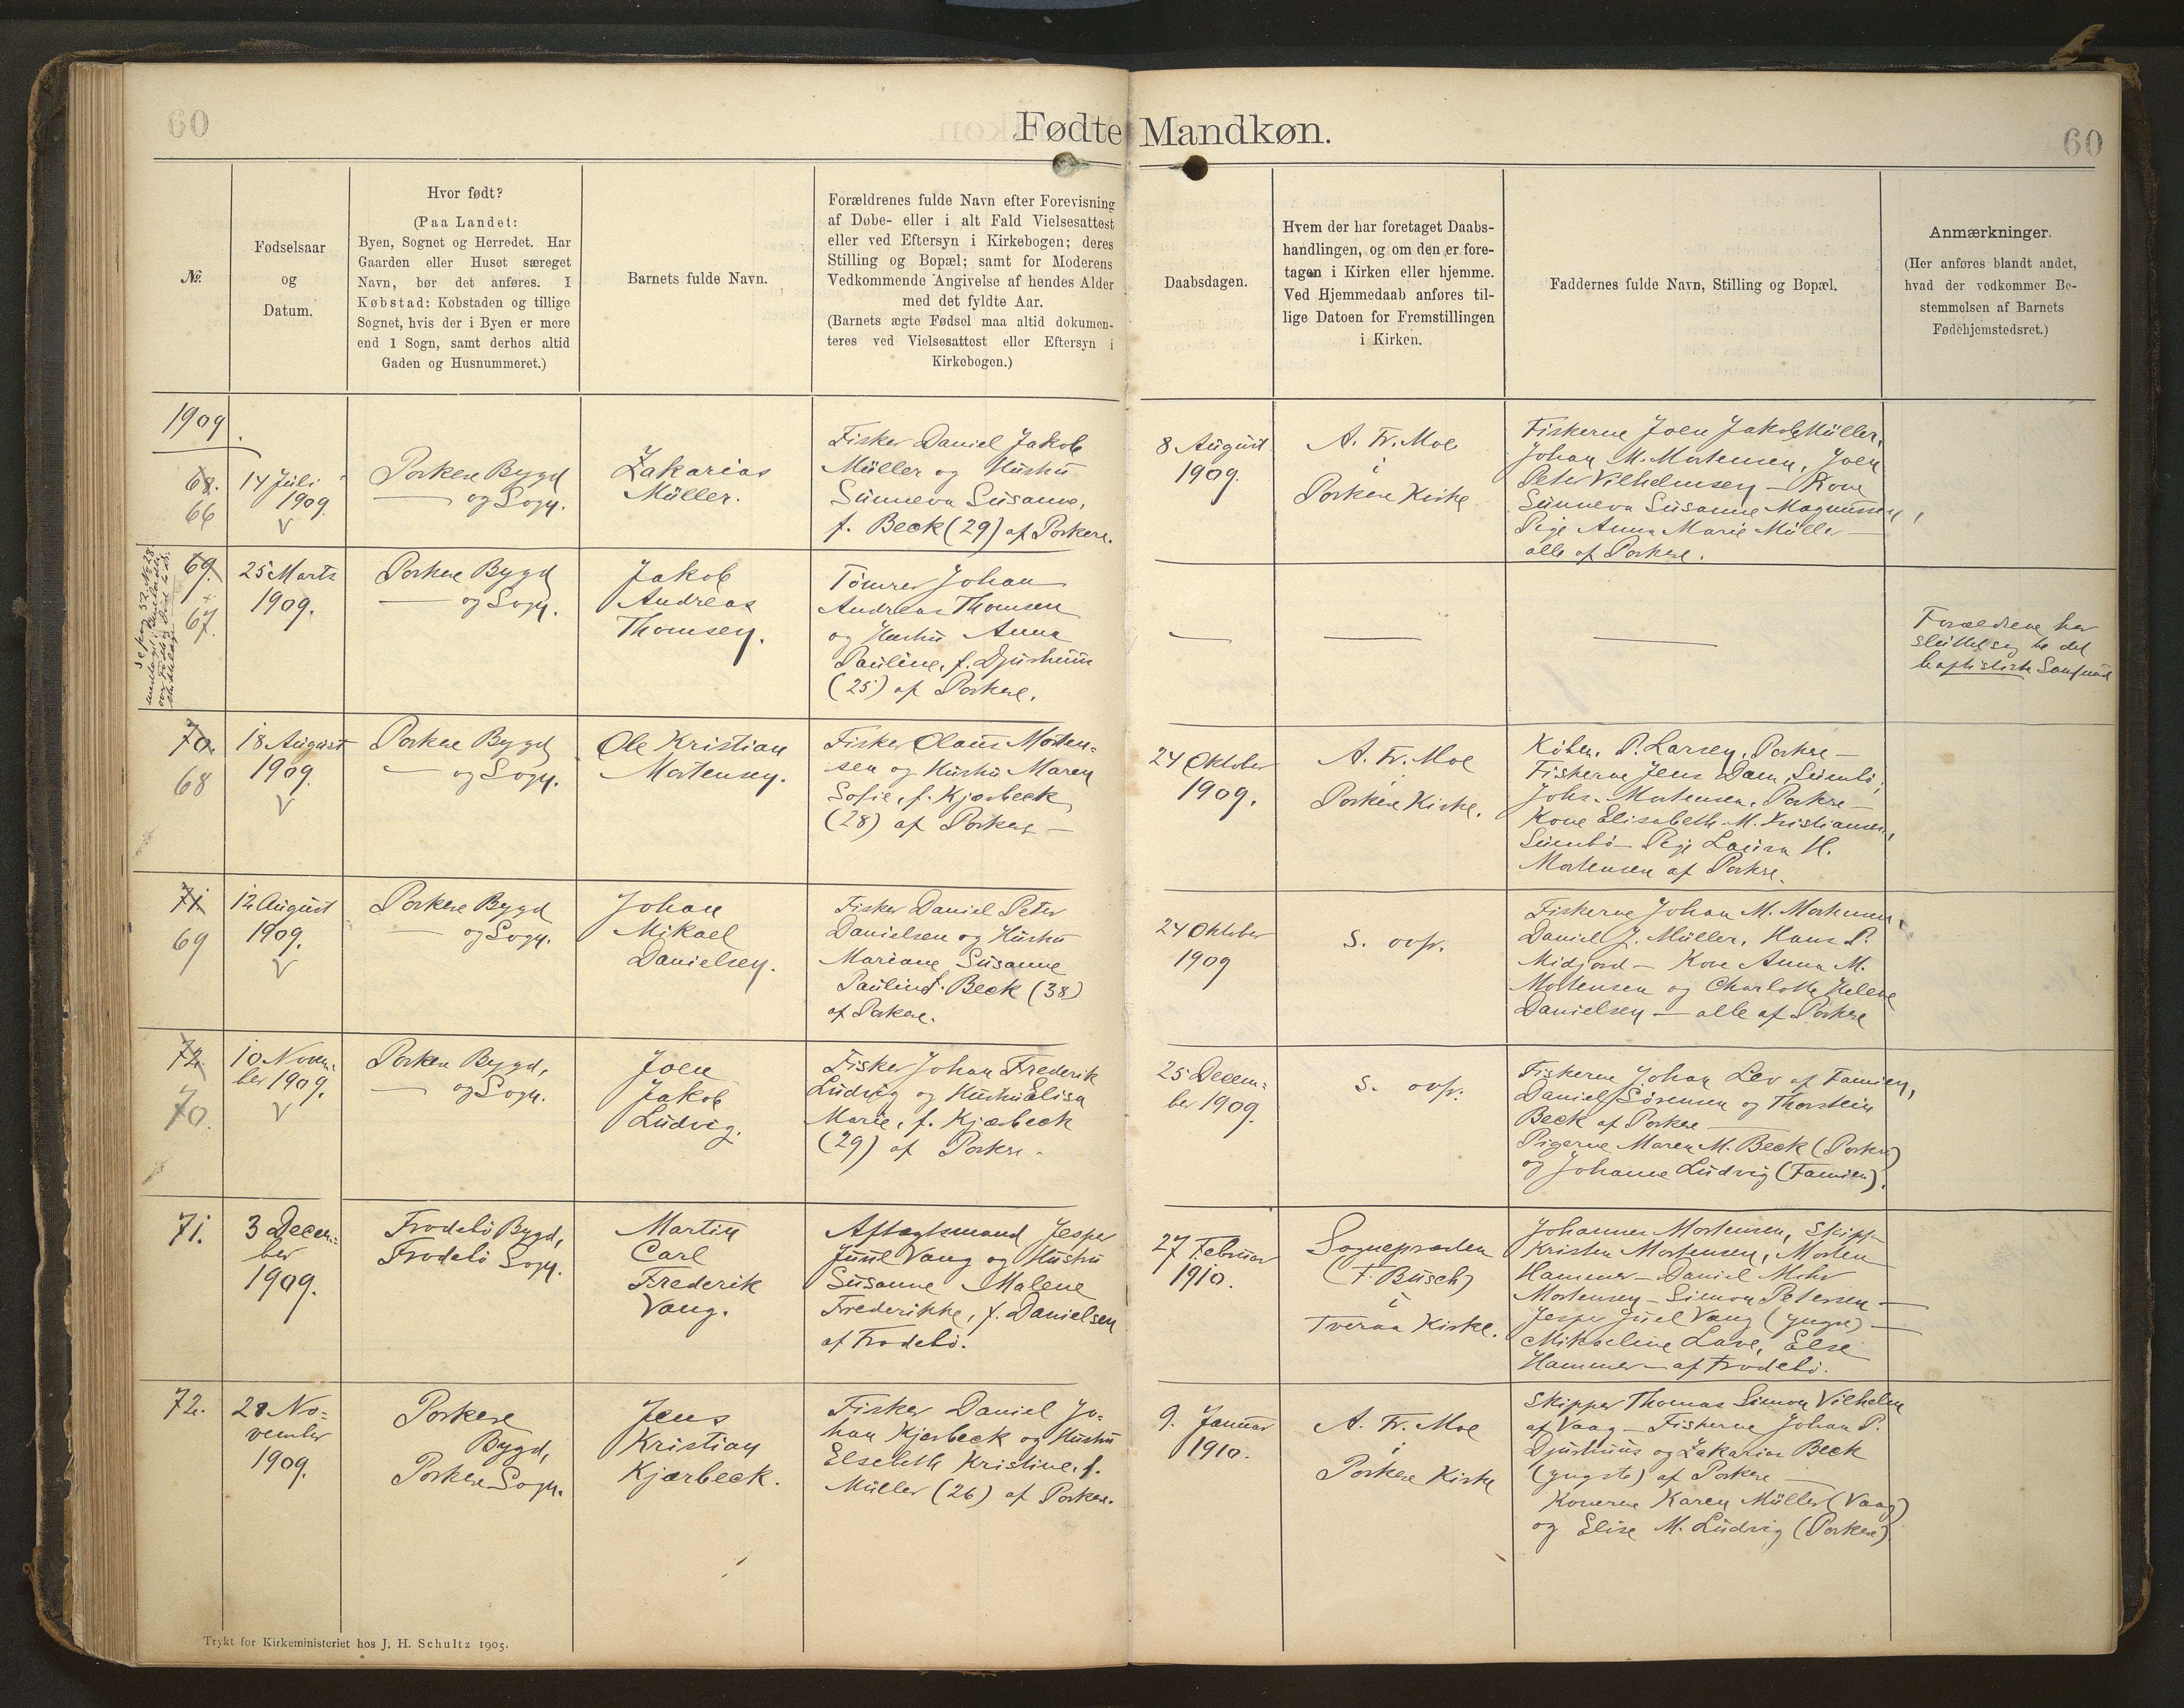 60
Fødte Mandkøn.
60
№
Fødselsaar
og
Datum.
Hvor født?
(Paa Landet:
Byen, Sognet og Herredet. Har
Gaarden eller Huset særeget
Navn, bør det anføres. I
Købstad: Købstaden og tillige
Sognet, hvis der i Byen er mere
end 1 Sogn, samt derhos altid
Gaden og Husnummeret.)
Barnets fulde Navn.
Forældrenes fulde Navn efter Forevisning
af Døbe- eller i alt Fald Vielsesattest
eller ved Eftersyn i Kirkebogen; deres
Stilling og Bopæl; samt for Moderens
Vedkommende Angivelse af hendes Alder
med det fyldte Aar.
(Barnets ægte Fødsel maa altid dokumen-
teres ved Vielsesattest eller Eftersyn i
Kirkebogen.)
Daabsdagen.
Hvem der har foretaget Daabs-
handlingen, og om den er fore-
tagen i Kirken eller hjemme.
Ved Hjemmedaab anføres til-
lige Datoen for Fremstillingen
i Kirken.
Faddernes fulde Navn, Stilling og Bopæl.
Anmærkninger.
(Her anføres blandt andet,
hvad der vedkommer Be-
stemmelsen af Barnets
Fødehjemstedsret.)
1909.
68.
66
14 Juli
1909.
V
Porkere Bygd
— og Sogn.
Zakarias
Müller.
Fisker Daniel Jakob
Müller og Hustru
Sunneva Susanne,
f. Beck (29) af Porkere.
8 August
1909.
A. Fr. Moe
i
Porkere Kirke
Fiskerne Joen Jakob Müller,
Johan M. Mortensen, Joen
Peter Vilhelmsen — Kone
Sunneva Susanne Magnussen,
Pige Anna Marie Müller —
alle af Porkere.
69.
+
67.
25 Marts
1909.
Porkere Bygd
— og Sogn.
Jakob
Andreas
Thomsen.
Tömrer Johan
Andreas Thomsen
og Hustru Anna
Pauline, f. Djurhuus
(25) af Porkere.
—
—
—
Forældrene har
sluttet sig til det
baptistiske Samfund
70.
68
18 August
1909.
V
Porkere Bygd
— og Sogn.
Ole Kristian
Mortensen.
Fisker Olaus Morten-
sen og Hustru Maren
Sofie, f. Kjærbeck
(28) af Porkere —
24 Oktober
1909.
A. Fr. Moe
i
Porkere Kirke.
Købm. P. Larsen, Porkere —
Fiskerne Jens Dam, Sumbø,
Johs. Mortensen, Porkere —
Kone Elisabeth M. Kristiansen,
Sumbø — Pige Laura H.
Mortensen af Porkere.
71.
69
12 August
1909.
V
Porkere Bygd
— og Sogn.
Johan
Mikael
Danielsen.
Fisker Daniel Peter
Danielsen og Hustru
Mariane Susanne
Pauline f. Beck (38)
af Porkere.
24 Oktober
1909
s. ovf.
Fiskerne Johan M. Mortensen,
Daniel J. Müller, Hans P.
Midjord — Kone Anna M.
Mortensen og Charlotte Helene
Danielsen — alle af Porkere
72.
70.
10 Novem-
ber 1909.
V
Porkere Bygd,
— og Sogn.
Joen
Jakob
Ludvig.
Fisker Johan Frederik
Ludvig og Hustru Elisa
Marie, f. Kjærbeck
(29) af Porkere.
25 Decem-
ber 1909.
s. ovf.
Fiskerne Johan Lev af Famien,
Daniel Sörensen og Thorstein
Beck af Porkere —
Pigerne Maren M. Beck (Porkere)
og Johanne Ludvig (Famien).
71.
3 Decem-
ber
1909.
Frodebö Bygd,
Frodebö Sogn.
Martin
Carl
Frederik
Vang.
Aftægtsmand Jesper
Juul Vang og Hustru
Susanne Malene
Frederikke, f. Danielsen
af Frodebö.
27 Februar
1910.
Sognepræsten
(F. Busch)
i
Tveraa Kirke.
Johannes Mortensen, Skipp
Kristen Mortensen, Morten
Hammer — Daniel
Mortensen — Simon Petersen —
Jesper Juel Vang (yngre) —
Mikkeline Lave, Else
Hammer — af Frodebö.
72.
28 No-
vember
1909.
Porkere
Bygd,
Porkere Sogn.
Jens
Kristian
Kjærbeck.
Fisker Daniel Jo-
han Kjærbeck og Hustru
Elsebeth Kristine, f.
Müller (26) af Porkere.
9. Januar
1910.
A. Fr. Moe
i
Porkere Kirke
Skipper Thomas Simon Vilhelm
af Vaag — Fiskerne Johan P.
Djurhuus og Zakarias Beck
(yngste) af Porkere —
Konerne Karen Müller (Vaag)
og Elise M. Ludvig (Porkere)
Trykt for Kirkeministeriet hos J. H. Schultz 1905.